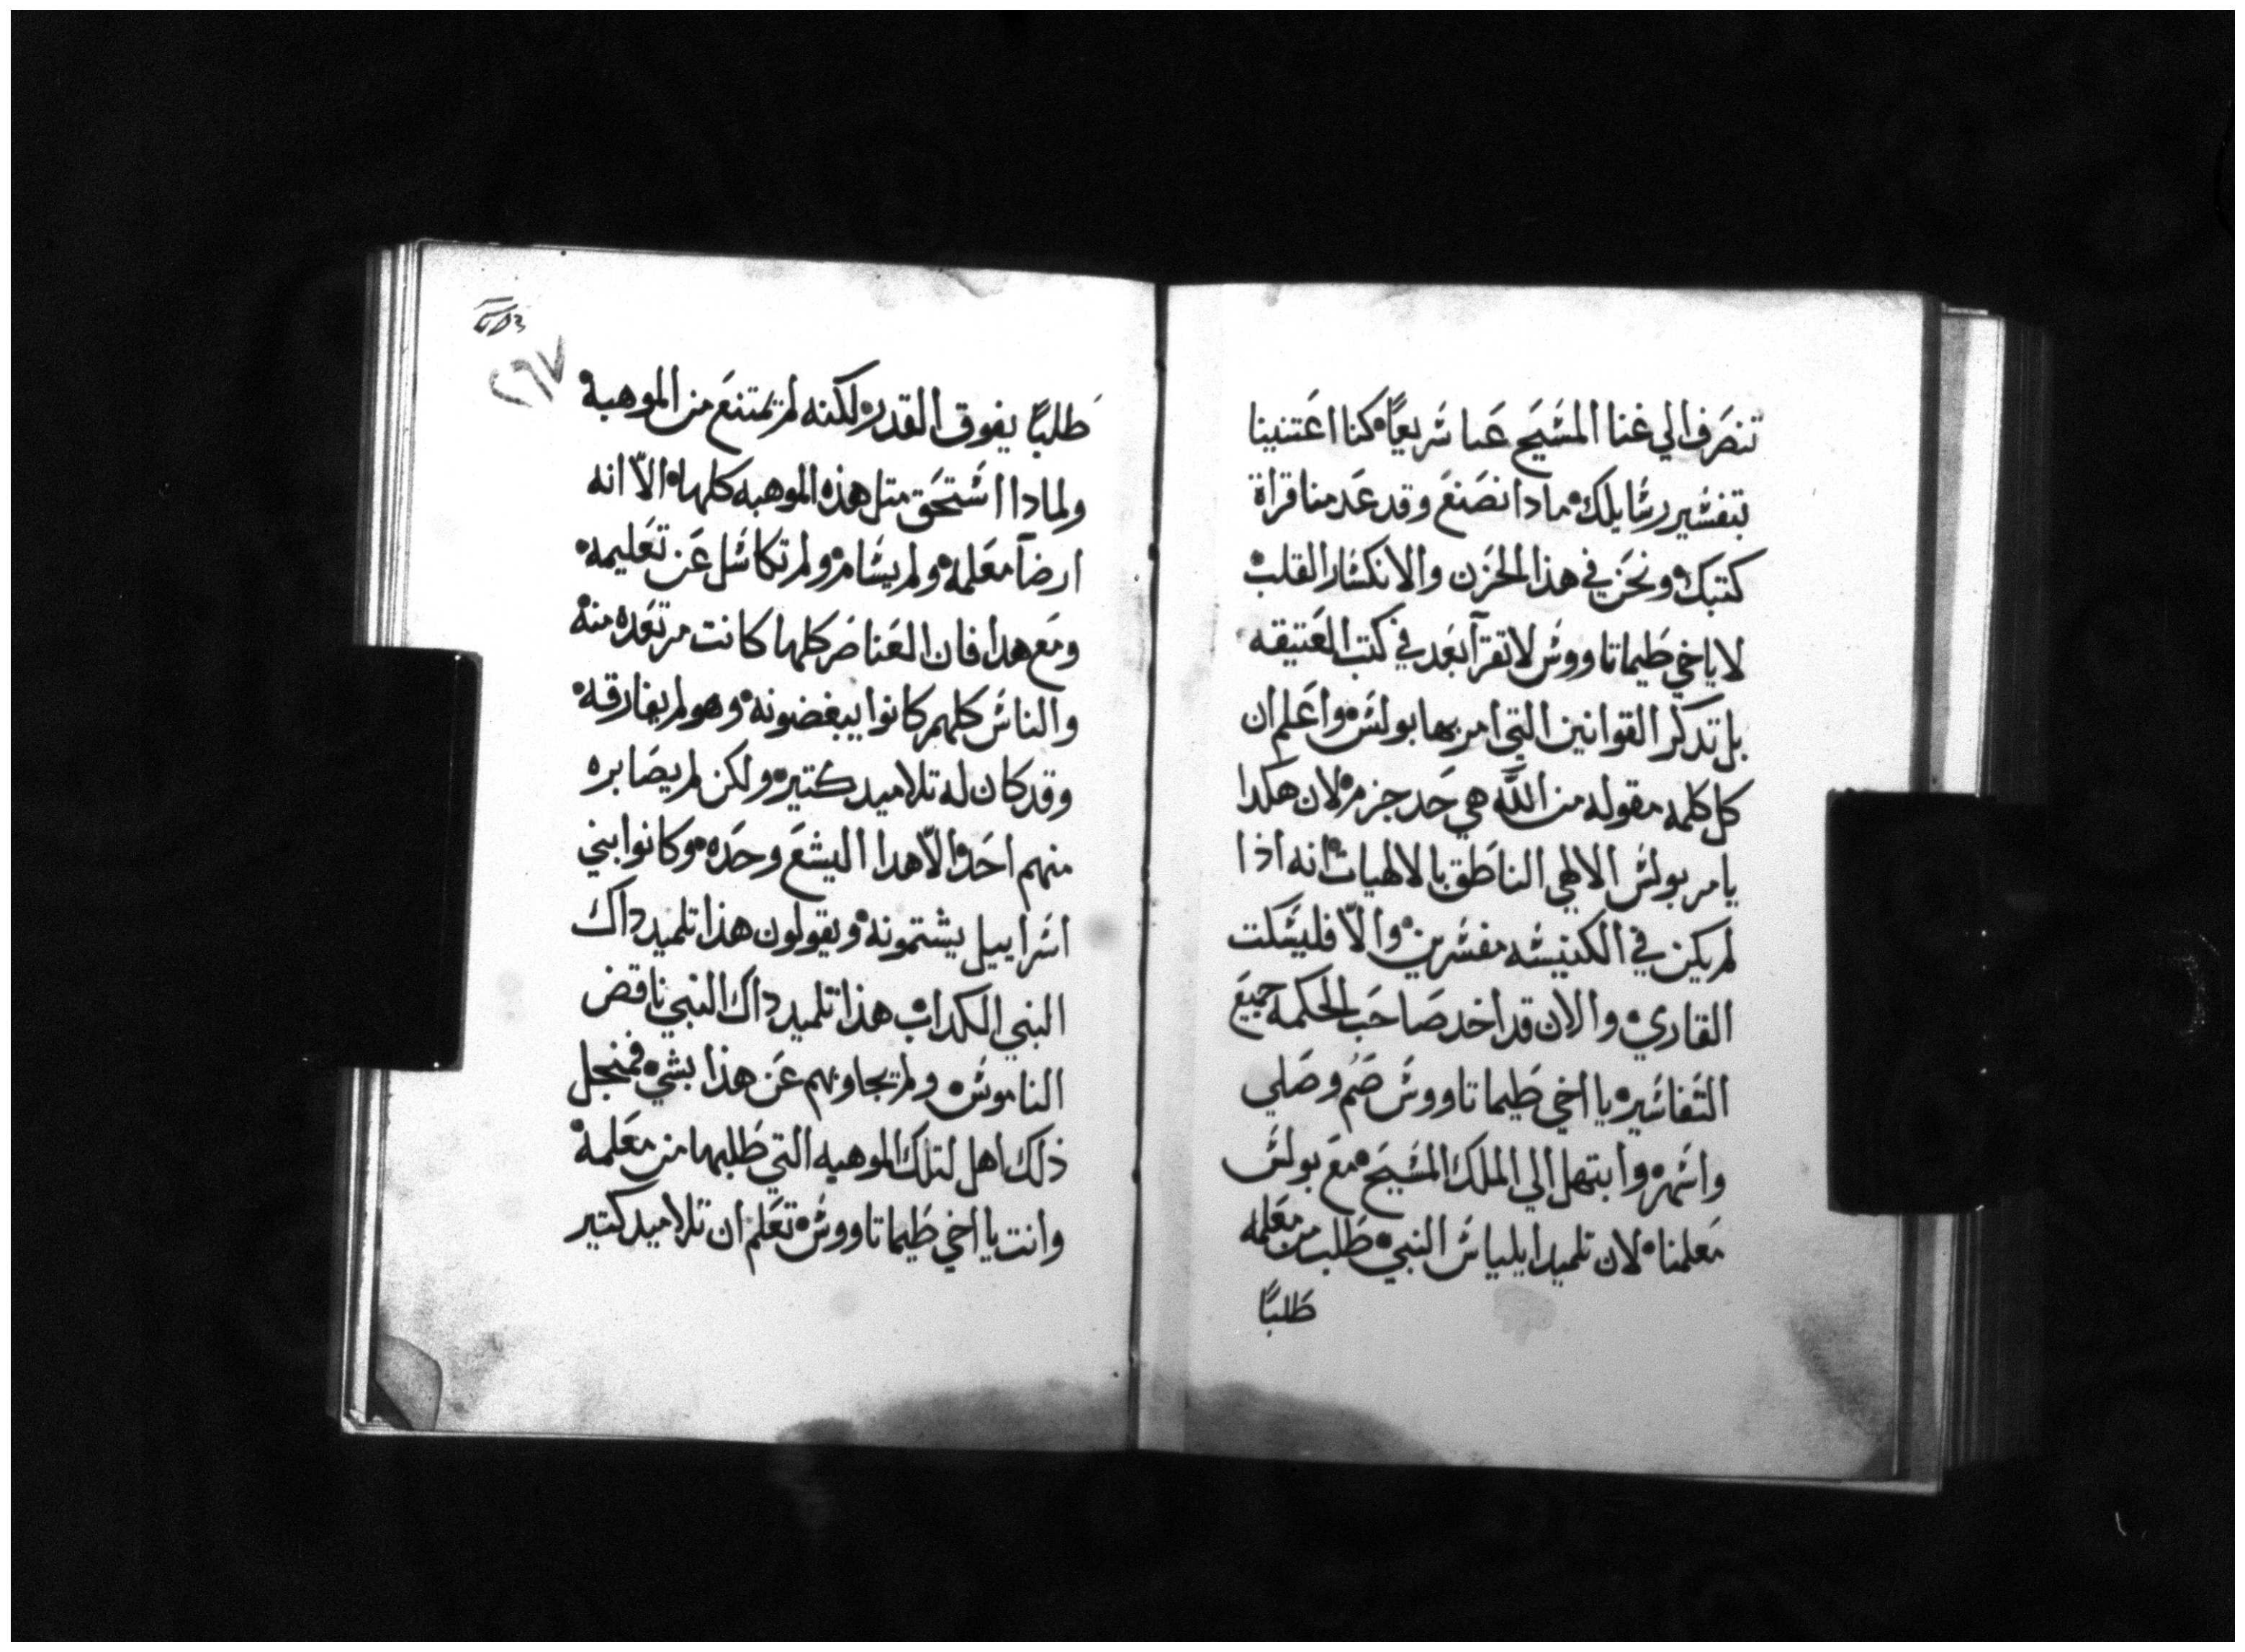 تنصرف الي غنا المسيح عبا سريعًا كنا اعتنينا
بتفسير رسايلك مادا نصنع وقد عدمنا قراة
كتبك ونحن في هذا الحزن والانكسار القلب
لا ياخي طيماتاووس لا تقرآ بعد في كتب العتيقه
بل تدكر القوانين التي امر بها بولس واعلم ان
كل كلمه مقوله من الله هي حد جزم لان هكدا
يامر بولس الالهي الناطق بالالهيات انه اذا
لم يكن في الكنيسه مفسرين والّا فليسكت
القاري والان قد اخد صاحب الحكمه جميع
التفاسير يا اخي طيماتاووس صُم وصلي
واسهر وابتهل الي الملك المسيح مع بولس
معلمنا لان تلميد ايلياس النبي طلب من معلمه
طلبًا
٢٩٧
طلبًا يفوق القدر لكنه لم يمتنع من الموهبة
ولمادا استحق متل هذه الموهبه كلها الّا انه
ارضآ معلمه ولم يسامر ولم تكاسل عن تعليمه
ومع هدا فان العناصر كلها كانت مرتعده منه
والناس كلهم كانوا يبغضونه وهو لم يفارقه
وقد كان له تلاميد كتيره ولكن لم يصابره
منهم احد الّا هدا اليشع وحده وكانوا بني
اسراييل يشتمونه ويقولون هذا تلميد داك
النبي الكداب هذا تلميد داك النبي ناقض
الناموس ولم يجاوبهم عن هذا بشي فمنجل
ذلك اهل لتلك الموهبه التي طلبها من معلمه
وانت يا اخي طيماتاووس تعلم ان تلاميد كتير